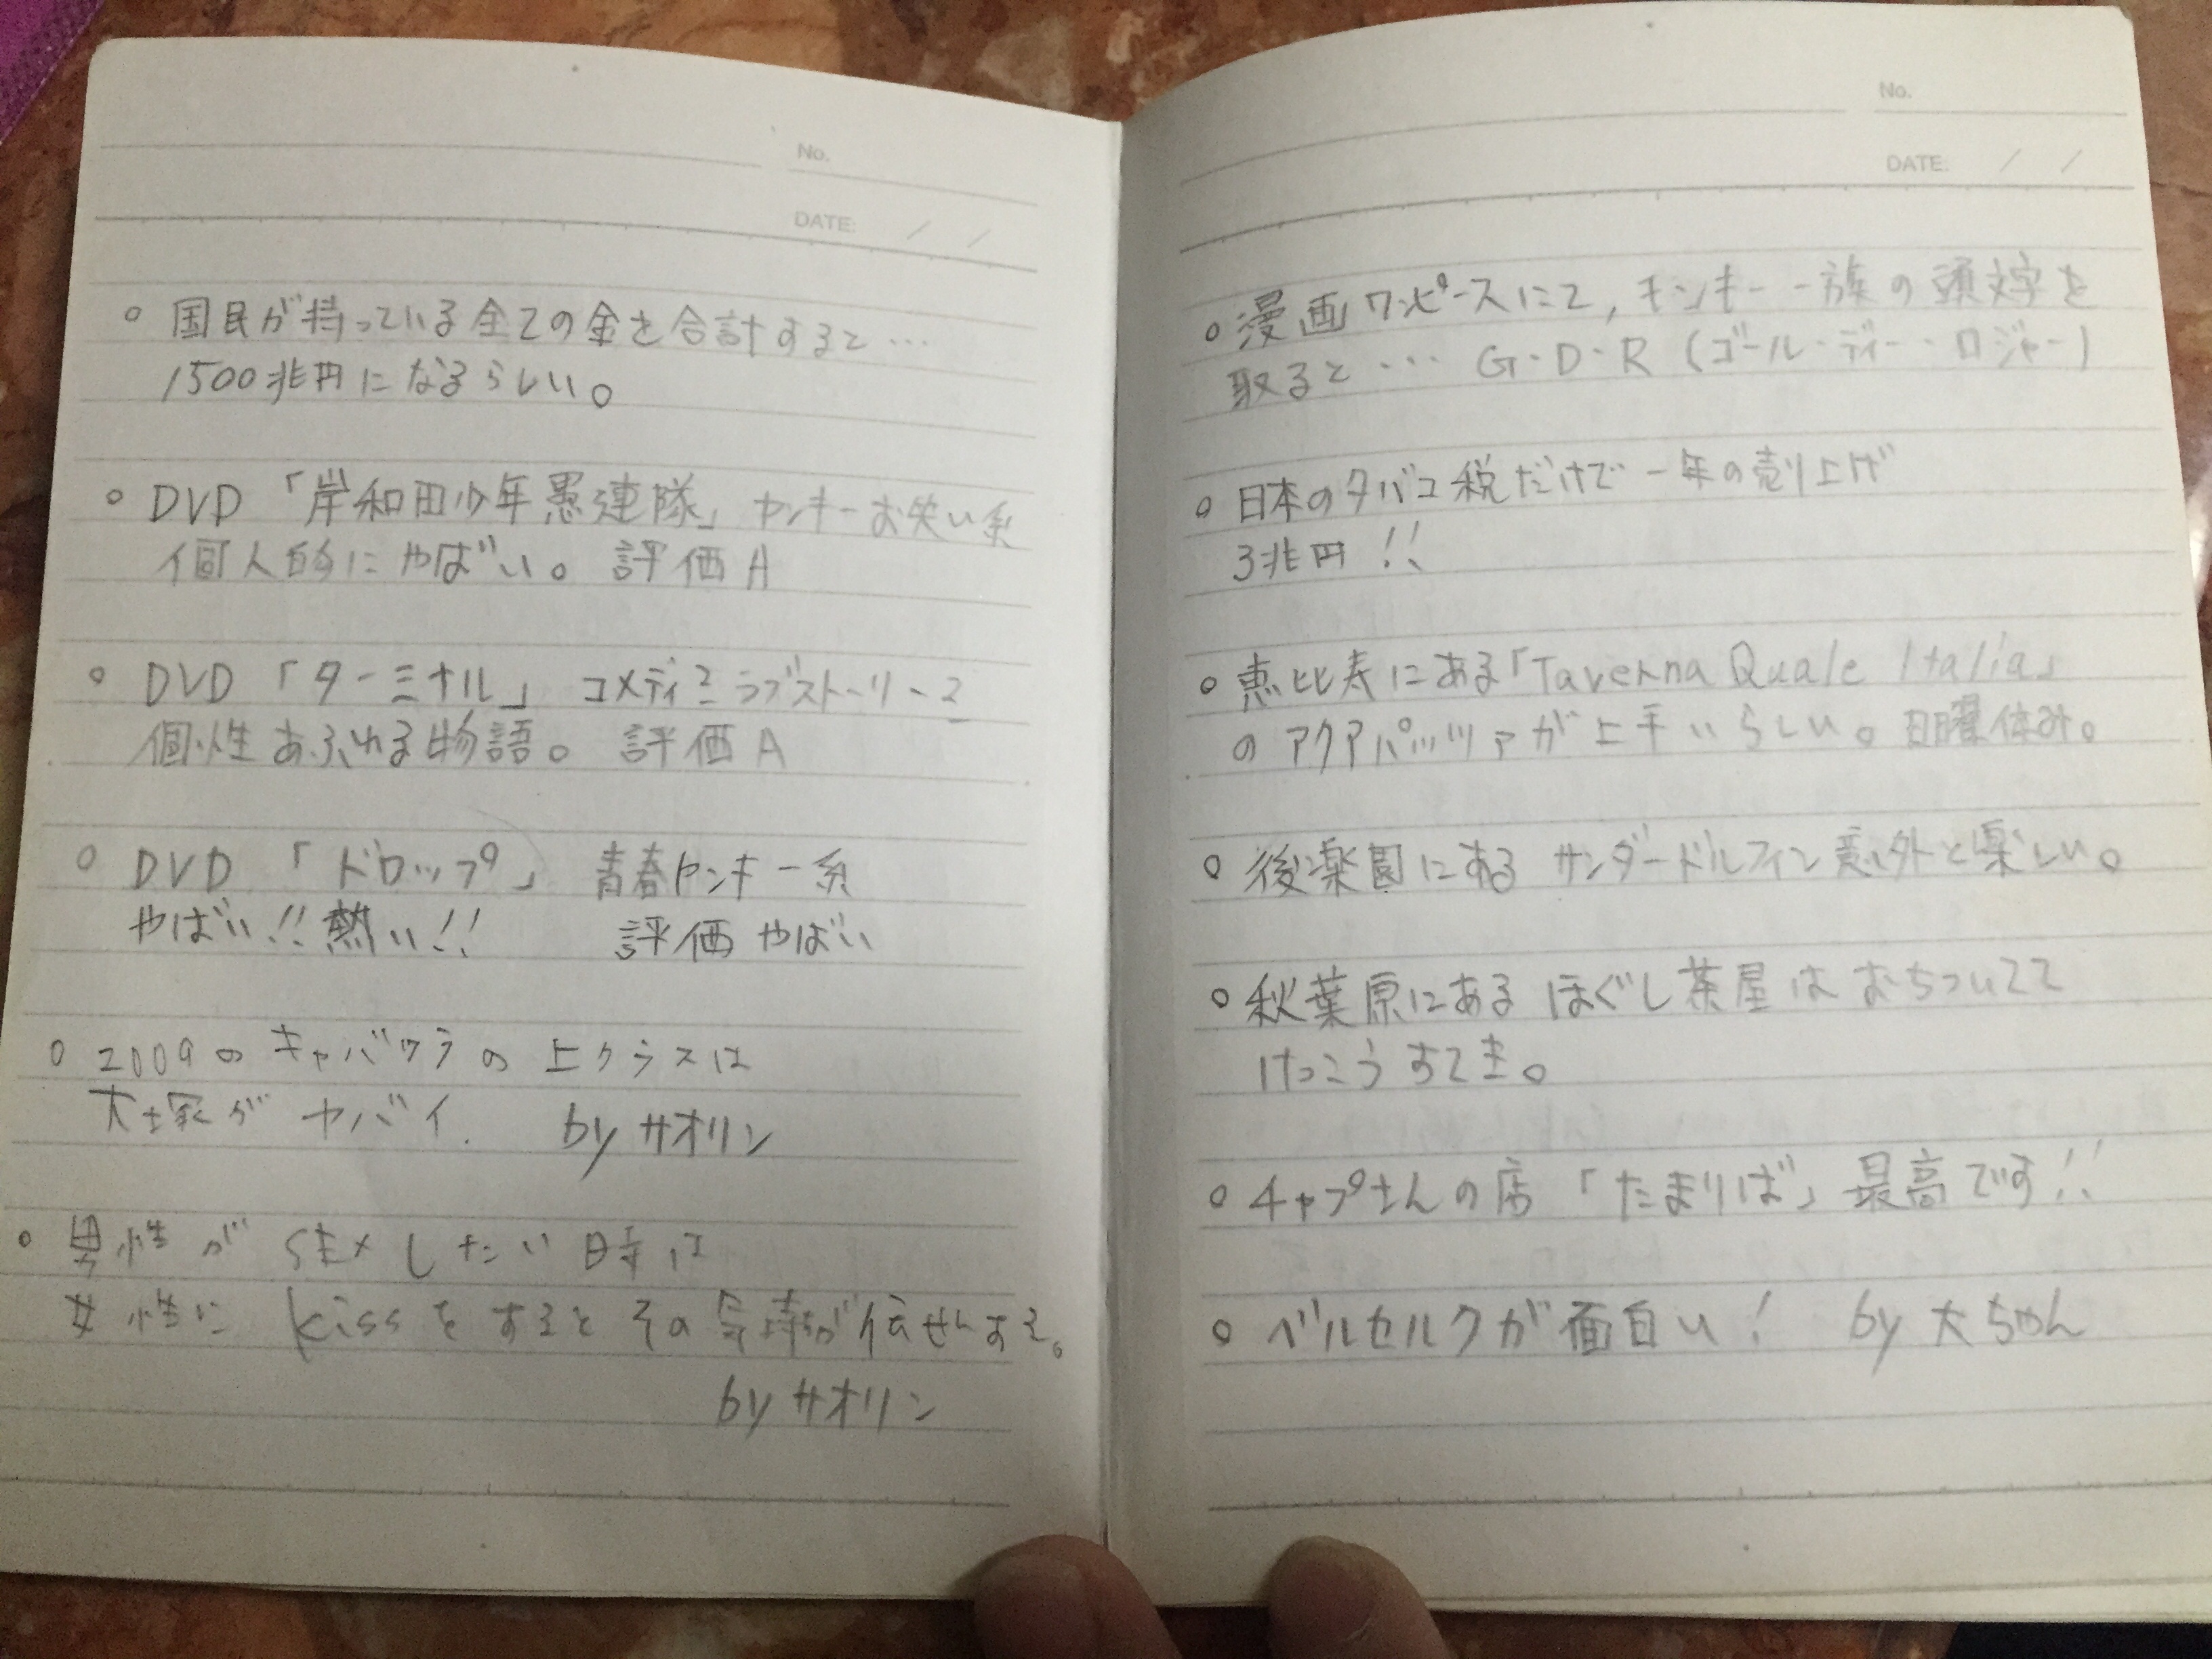 No.
DATE: / /
○ 国民が持っている全ての金を合計すると…
1500兆円になるらしい。
○ DVD 「岸和田少年愚連隊」 ヤンキーお笑い系
個人的にやばい。 評価A
○ DVD 「ターミナル」 コメディ? ラブストーリー?
個性あふれる物語。 評価A
○ DVD 「ドロップ」 青春ヤンキー系
やばい!!熱い!! 評価 やばい
○ 2009のキャバクラの上クラスは
大塚がヤバイ. by サオリン
○ 男性がSEXしたい時は
女性に kissをするとその気持が伝せんする。
by サオリン
No.
DATE: / /
○ 漫画ワンピースにて, モンキー一族の頭文字を
取ると… G・D・R (ゴール・ディー・ロジャー)
○ 日本のタバコ税だけで一年の売り上げ
3兆円!!
○ 恵比寿にある「Taverna Quale Italia」
のアクアパッツァが上手いらしい。日曜休み。
○ 後楽園にあるサンダードルフィン意外と楽しい。
○ 秋葉原にあるほぐし茶屋はおちついてて
けっこうすてき。
○ チャプさんの店「たまりば」最高です!!
○ ベルセルクが面白い! by 大ちゃん